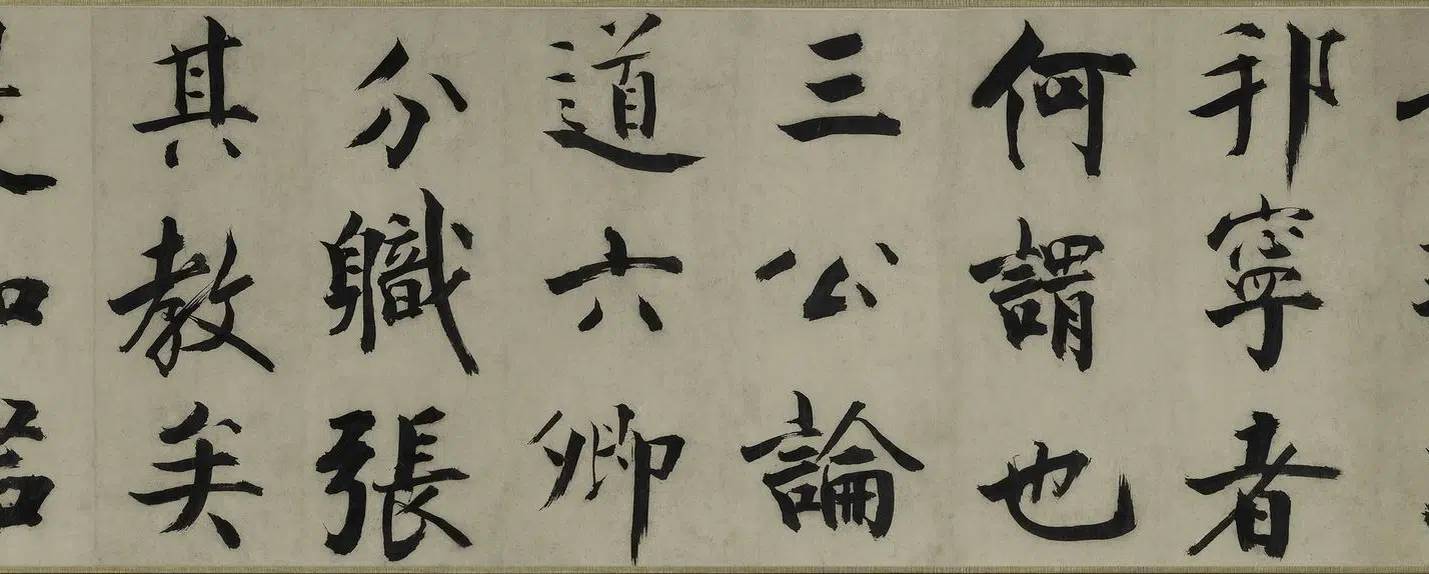 邦寧者
何謂也
三公論
道六卿
分軄張
其教矣